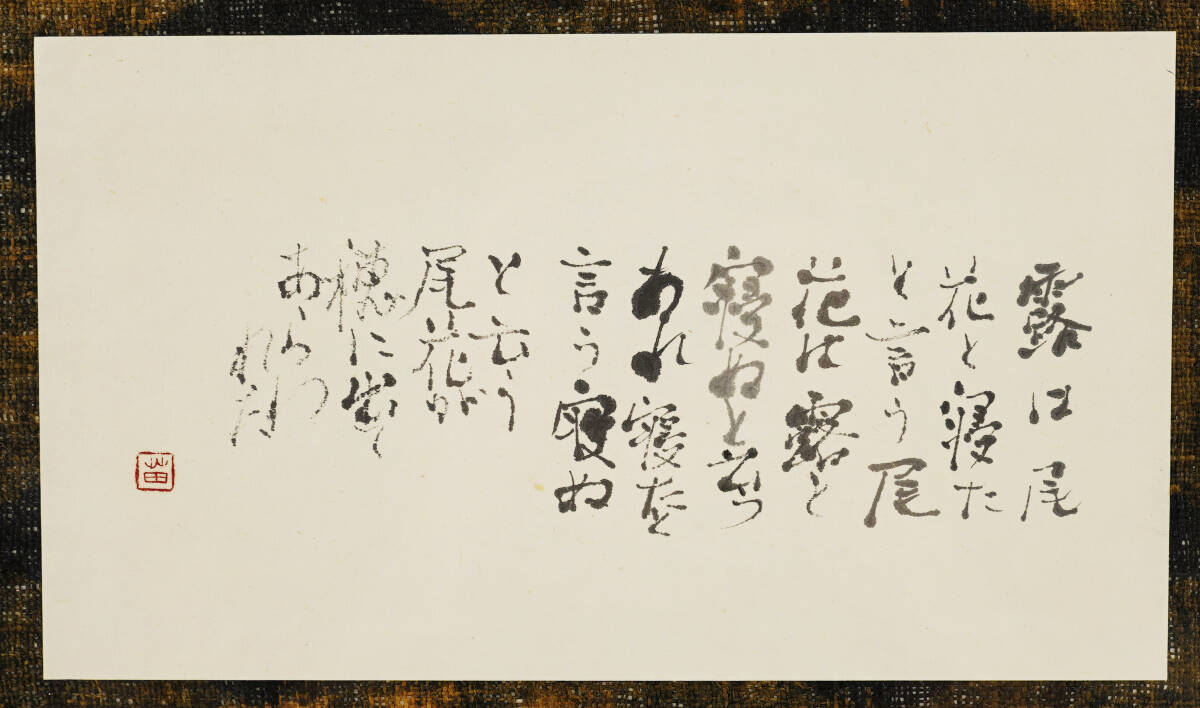 露は尾
花と寝た
と言う尾
花は露と
寝ぬと言う
あれ寝たと
言う寝ぬ
と云う
尾花が
穂に出て
あらわ
れた
苗